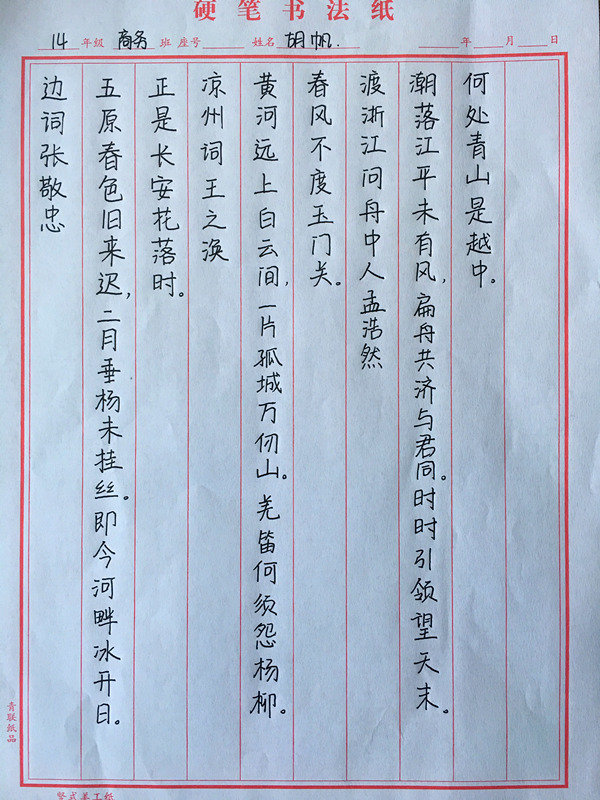 硬笔书法纸
14 年级 商务 班 座号 姓名 胡帆. 年 月 日
边词张敬忠
五原春色旧来迟,二月垂杨未挂丝。即今河畔冰开日。
正是长安花落时。
凉州词王之涣
黄河远上白云间,一片孤城万仞山。羌笛何须怨杨柳。
春风不度玉门关。
渡浙江问舟中人孟浩然
潮落江平未有风,扁舟共济与君同。时时引领望天末。
何处青山是越中。
青联纸品
竖式美工纸